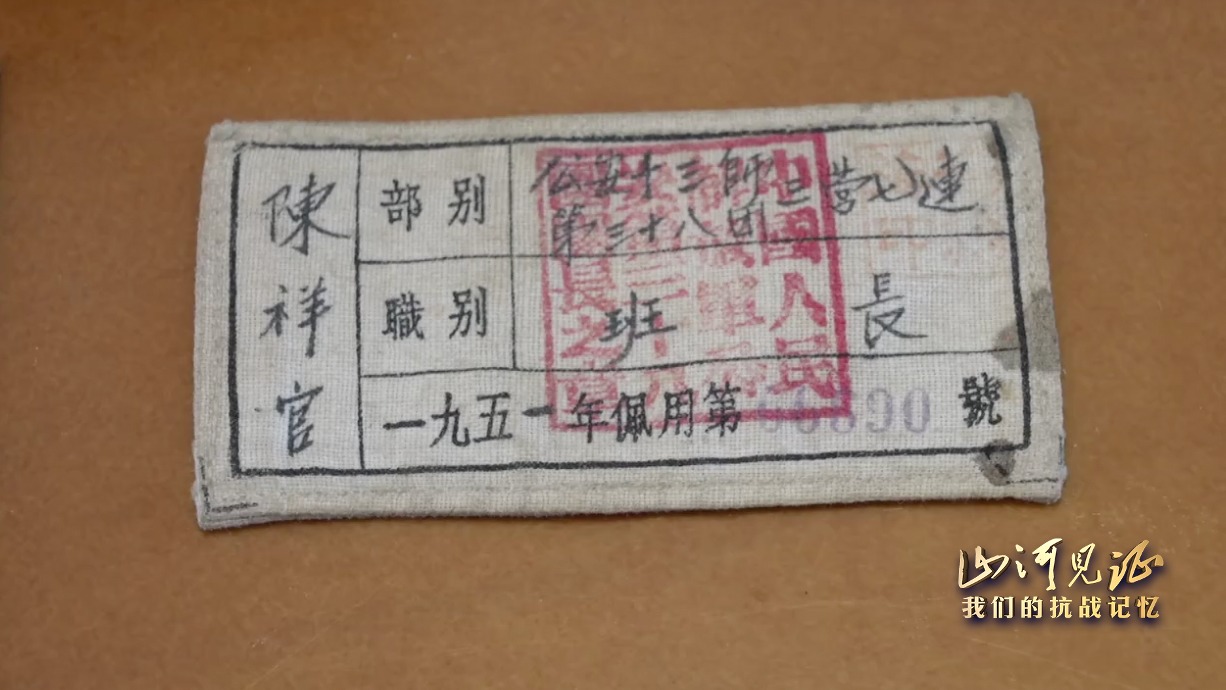 陳祥官
部别
公安十三師
第三十八团
三营七連
職别
班長
一九五一年佩用第
0890
號
中國人民
山河见证
我们的抗战记忆